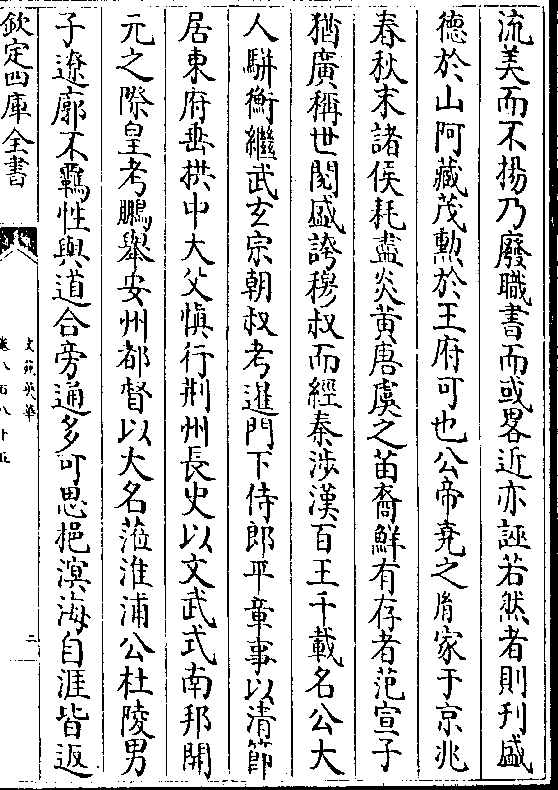 流美而不揚乃廢職書而或畧近亦誣若然者則刋盛
德於山阿藏茂勲於王府可也公帝堯之𦙍家于京兆
春秋末諸侯耗盡炎黄唐虞之苗裔鮮有存者范宣子
猶廣稱世閥盛誇穆叔而經秦涉漢百王千載名公大
人駢衡繼武玄宗朝叔考暹門下侍郎平章事以清節
居東府垂拱中大父慎行荆州長史以文武式南邦開
元之際皇考鵬舉安州都督以大名蒞淮浦公杜陵男
子遼廓不羈性與道合旁通多可思挹溟海自涯皆返
欽定四庫全書
文苑英華
卷八百八十五
二